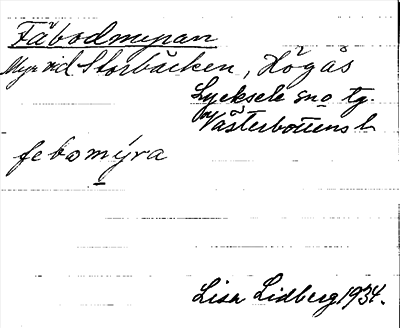 Fäbodmyran
Myr vid Storbäcken, Högås
Lycksele sno tg.
Västerbottens l.
febomýra
Lisa Lidberg 1934.